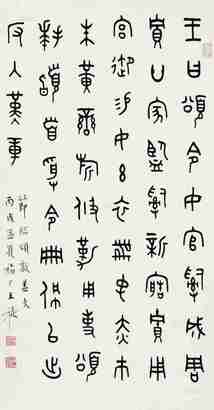 王曰頌令女官𤔲成周
貯廿家監𤔲新造貯用
宮御易女玄衣黹屯赤巿
朱黃鑾旂攸勒用事頌
拜䭫首受令冊佩以出
反入堇章
節臨頌敦蓋文
丙戌孟夏福厂王禔